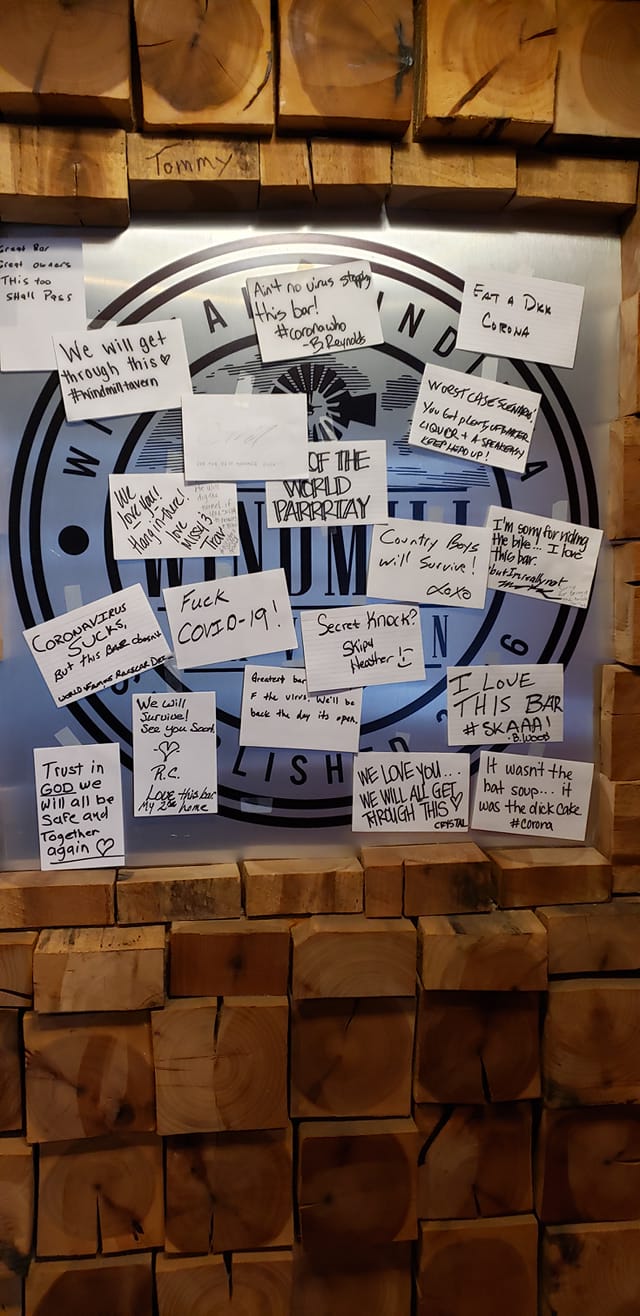 Tommy
Great Bar
Great owners
THis too
SHall Pass
Ain't no virus stopping
this bar!
#coronawho
-B Reynolds
EAT A DICK
CORONA
We will get
through this ♡
#windmilltavern
WORST CASE SCENARIO!
You Got plenty OF WATER
LIQUOR + A SPEAKEASY
KEEP HEAD UP!
OF THE
WORLD
PARRRTAY
We
love you!
Hang in there!
love
Missy &
Trav
WINDMILL
Country Boys
will Survive!
XoXo
I'm sorry for riding
the bike... I love
this bar.
but I'm really not
CORONAVIRUS
SUCKS,
But this BAR doesn't
WORLD FAMOUS RACECAR
Fuck
COVID-19!
Secret Knock?
Skip &
Heather
Greatest bar
F the virus. We'll be
back the day its open.
I LOVE
THIS BAR
#SKAAA!
-B.WOOD
We will
Survive!
See you Soon!
-♡-
R.C.
LOVE this bar
My 2nd home
LISHED
Trust in
GOD we
will all be
Safe and
Together
again ♡
WE LOVE YOU...
WE WILL ALL GET
THROUGH THIS ♡
CRYSTAL
It wasn't the
bat soup... it
was the dick cake
#corona